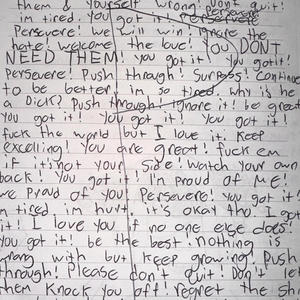 them & yourself wrong! Don't quit!
im tired. you got it! Persevere
Persevere! We will win! ignore the
hate! welcome the love! You DONT
NEED THEM! you got it! You got it!
Persevere! Push through! Surpass! Continue
to be better. im so tired, why is he
a Dick? Push through! ignore it! be great
You got it! You got it! You got it!
fuck the world but I love it. Keep
excelling! You are great! fuck em
if its not your side! Watch your own
back! You got it! I'm proud of ME!
we proud of You! Persevere! You got it!
m tired. im hurt. it's okay tho. I got
it! I love you if no one else does!
You got it! be the best! nothing is
wrong with but keep growing! Push
through! Please don't quit! Don't let
them Knock you off! regret the sh